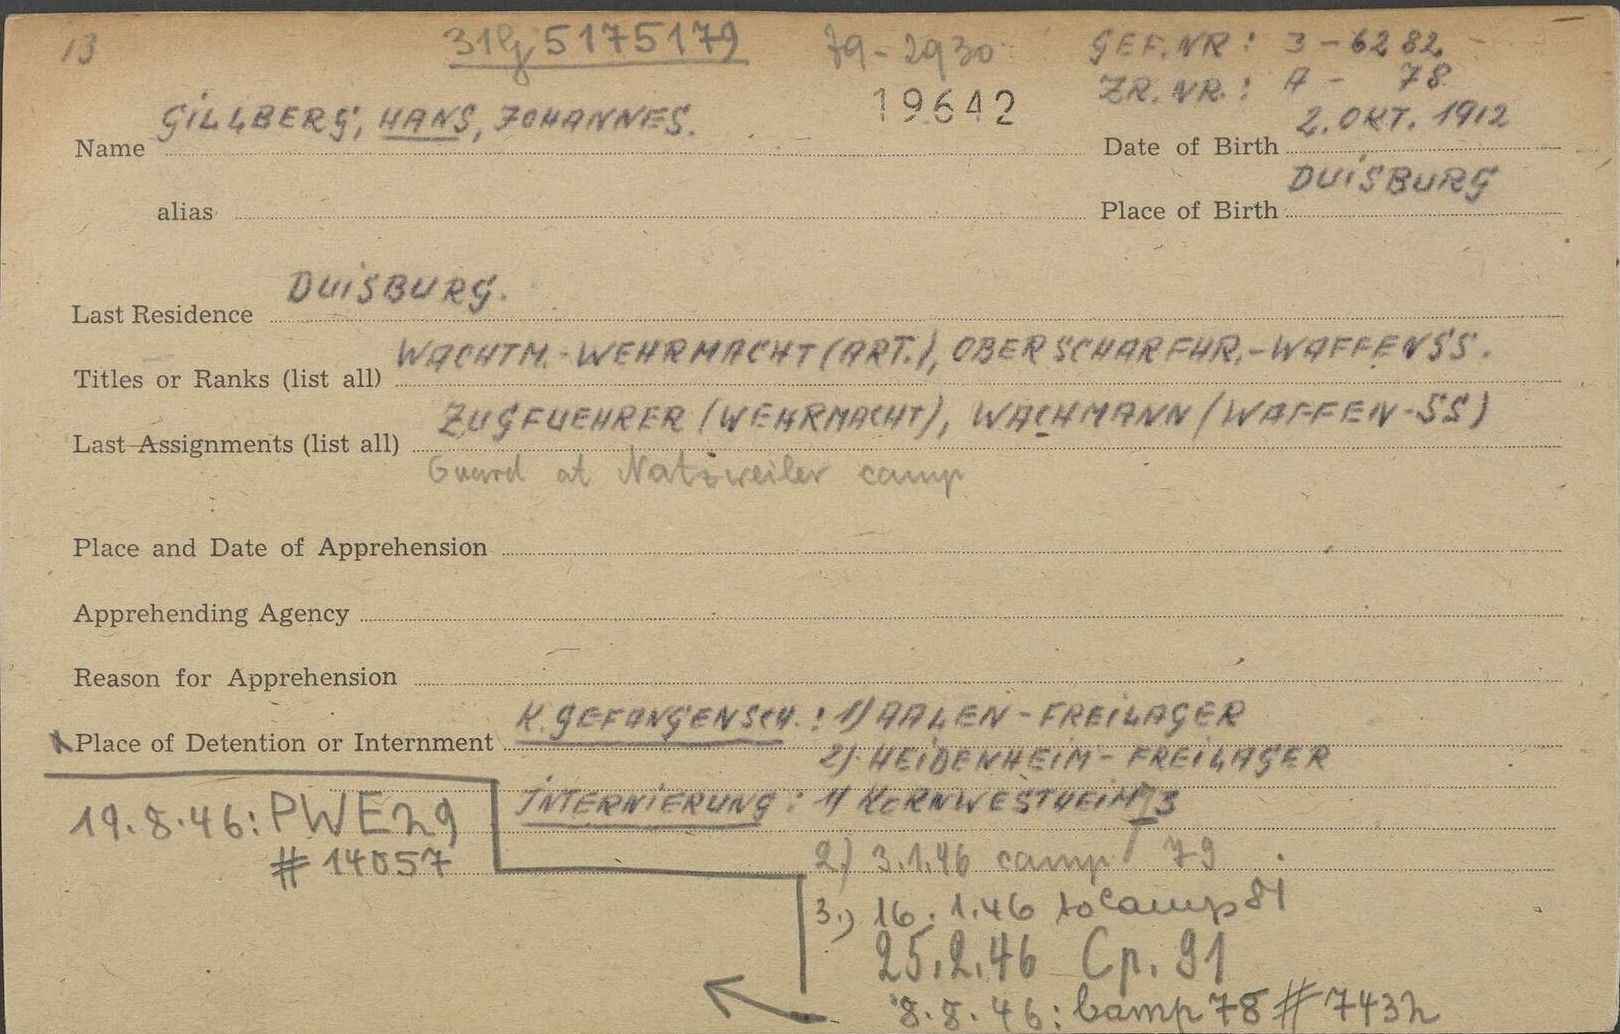 13 31G 5175179 79-2930 GEF.NR: 3-6282
ZR.NR.: A- 78
19642
Name GILLBERG, HANS, JOHANNES. Date of Birth 2. OKT. 1912
alias Place of Birth DUISBURG
Last Residence DUISBURG.
Titles or Ranks (list all) WACHTM.-WEHRMACHT (ART.), OBERSCHARFHR.-WAFFENSS.
Last Assignments (list all) ZUGFUEHRER (WEHRMACHT), WACHMANN (WAFFEN-SS)
Guard at Natzweiler camp
Place and Date of Apprehension
Apprehending Agency
Reason for Apprehension
Place of Detention or Internment K.GEFANGENSCH.: 1) AALEN-FREILAGER
2) HEIDENHEIM-FREILAGER
INTERNIERUNG: 1) KORNWESTHEIM 73
19.8.46: PWE 29
# 14057
2) 3.1.46 camp 79
3.) 16.1.46 to Camp 81
25.2.46 Cp. 91
8.8.46: Camp 78 # 7432